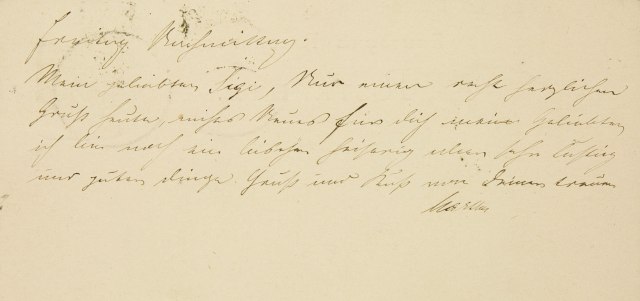 Freitag Nachmittag.
Mein geliebter Sigi, Nur einen recht herzlichen
Gruß heute, nichts Neues für dich mein Geliebter
ich bin noch ein bischen heiserig aber sehr lustig
und guter dinge. Gruß und Kuß von Deiner treuen
Martha